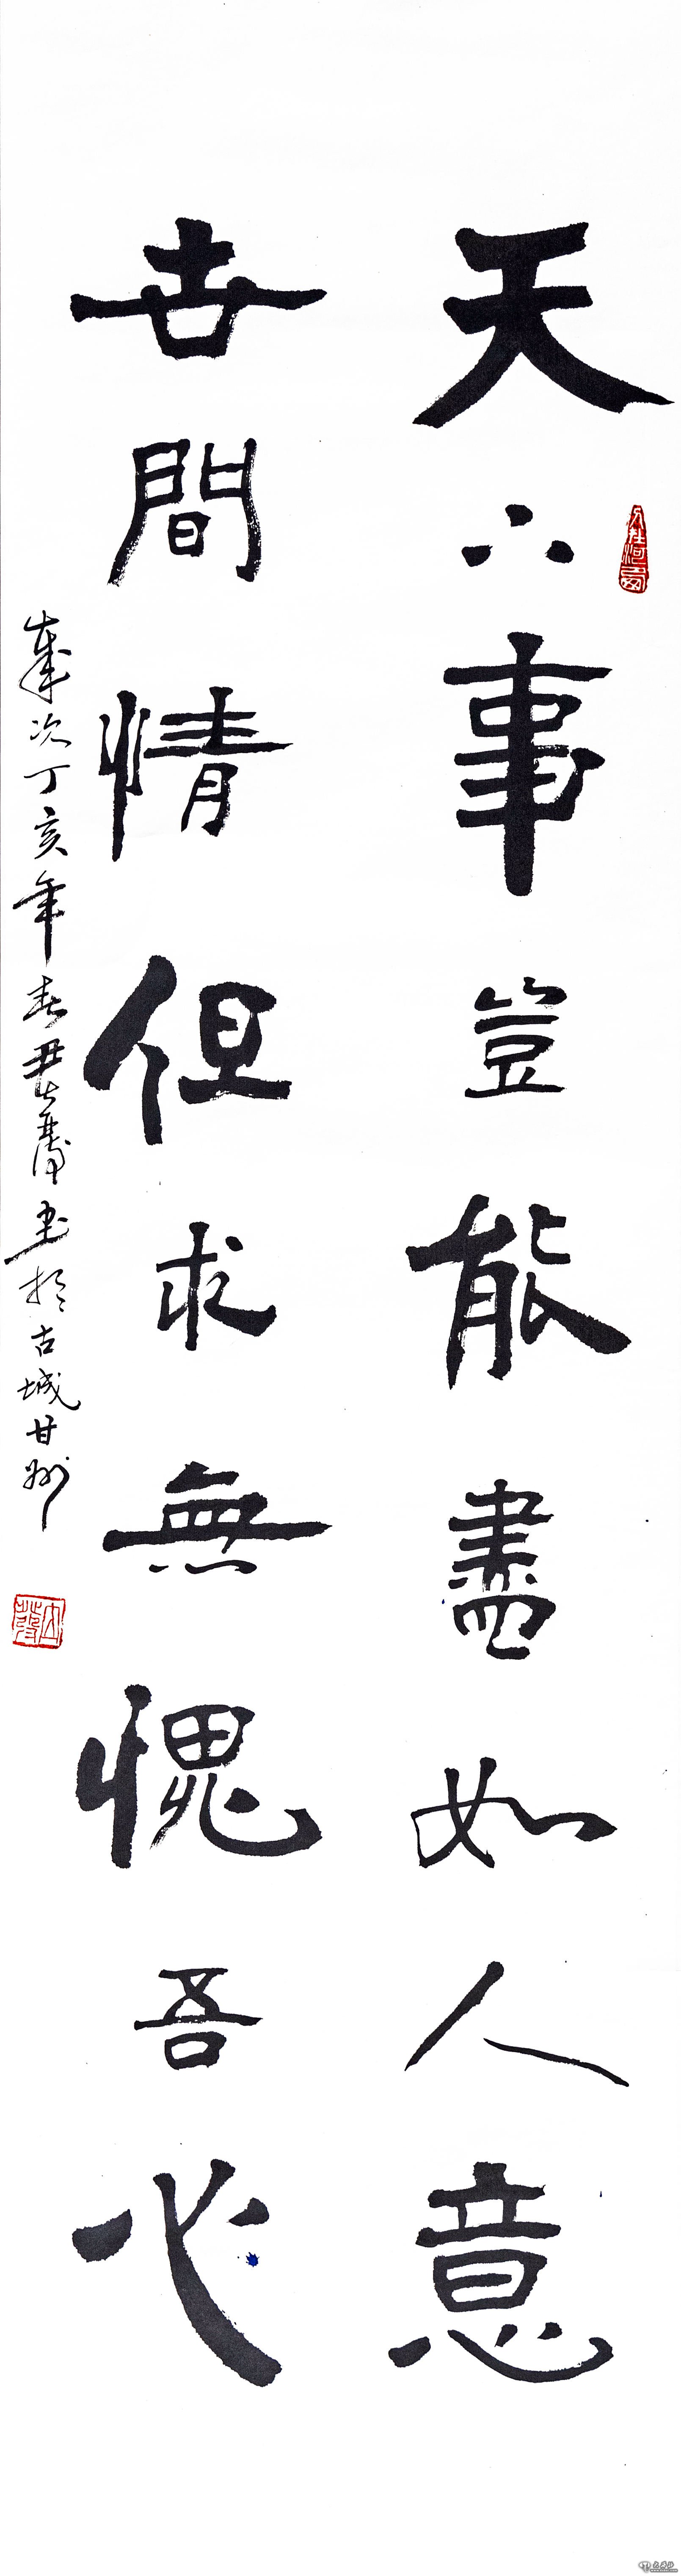 天下事豈能盡如人意
世間情但求無愧吾心
歲次丁亥年春书於古城甘州